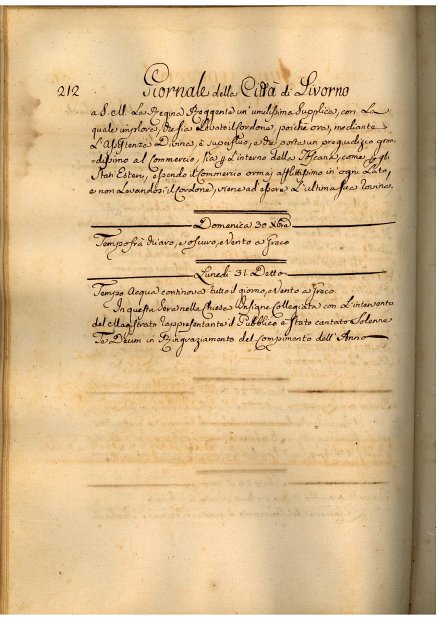 212 Giornale della Città di Livorno
a S. M. La Regina Reggente un'umilissima Supplica, con La
quale implora, che sia Levato il Cordone, poiche ora, mediante
L'Assistenza Divina, è superfluo, e che porta un pregiudizio gran-
dissimo al Commercio, sia p L'interno della Toscana, come p gli
Stati Esteri, essendo il Commercio ormai afflittissimo in ogni Lato,
e non Levandosi il Cordone, viene ad essere L'ultima sua rovina.
Domenica 30 Xbre
Tempo frà chiaro, e oscuro, e Vento a Greco
Lunedì 31. Detto
Tempo Acqua continova tutto il giorno, e Vento a Greco.
In questa Sera nella Chiesa Insigne Collegiata con L'intervento
del Magistrato rappresentante il Pubblico è stato cantato Solenne
Te Deum in Ringraziamento del compimento dell'Anno